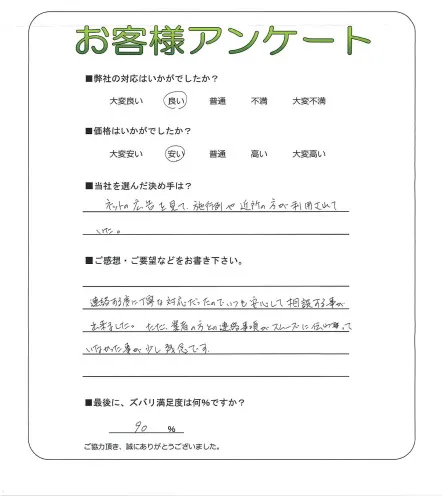 お客様アンケート
■弊社の対応はいかがでしたか?
大変良い 良い 普通 不満 大変不満
■価格はいかがでしたか?
大変安い 安い 普通 高い 大変高い
■当社を選んだ決め手は?
ネットの広告を見て、施行例や近所の方が利用されて
いた。
■ご感想・ご要望などをお書き下さい。
連絡する度に丁寧な対応だったのでいつも安心して相談する事が
出来ました。ただ、業者の方との連絡事項がスムーズに伝わって
いなかった事が少し残念です
■最後に、ズバリ満足度は何%ですか?
90 %
ご協力頂き、誠にありがとうございました。